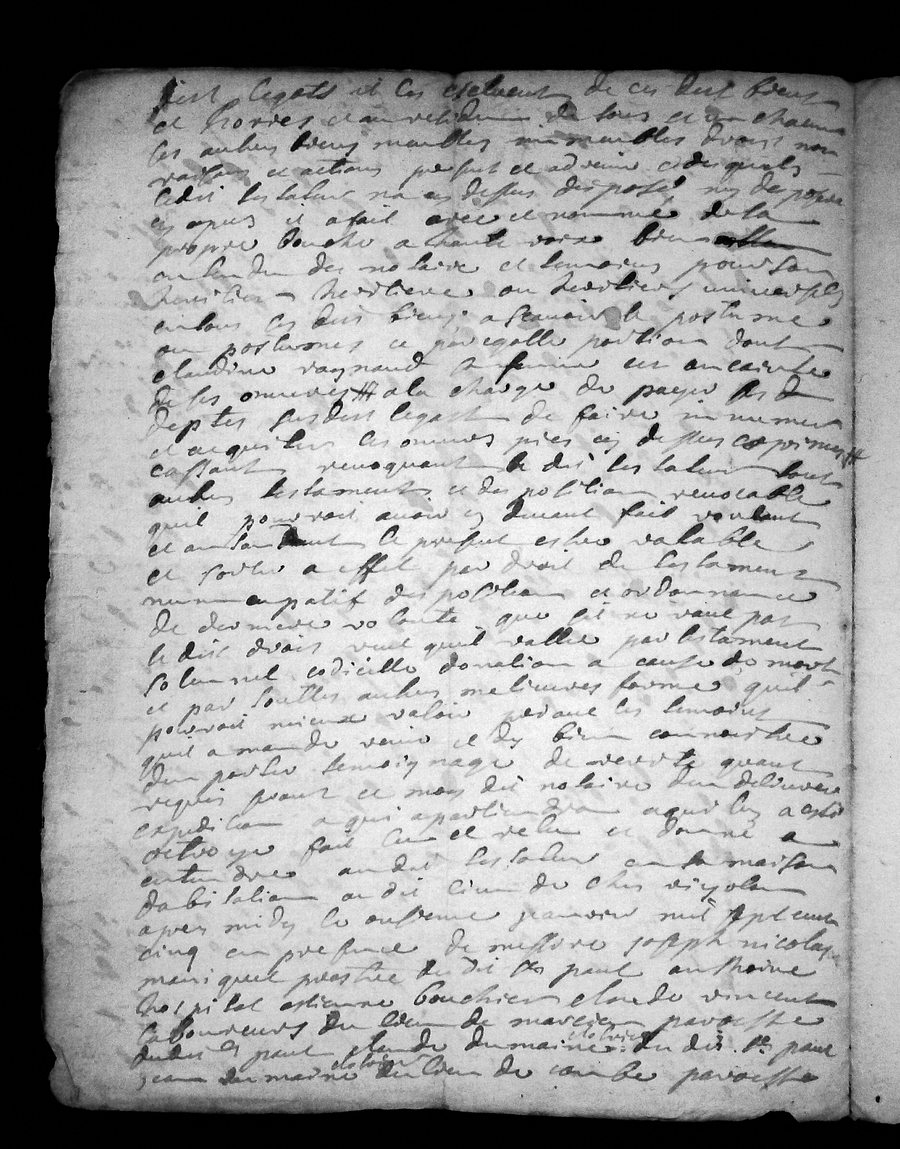 dest legats et les excluent de ces dest biens
et hoories et au residium de tous et un chacuns
ses autres biens meubles immeubles droits nom
raisons et actions present et advenir desquels
ledit testateur na cy dessus disposé ny dispose
cy apres et a fait cree et nommé de sa
propre bouche a haute voix bien
entendu des notaire et temoins pour son
heritier heritiere ou heritiers universels
en tous ces dits biens a scavoir le postume
ou postumes et par egalle portion dont
claudine raynaud sa femme est anceinte
de ses oeuvres # a la charge de payer ses
deptes susdest legast de faire inumer
et acquiter les oeuvres pies cy dessus exprimes #
cassant revoquant le dit testateur tout
autres testament et disposition revocable
quil pourroit avoir cy devant fait voulant
et le present estre valable
et sortir a effet par droit de testament
nuncupatif disposition et ordonnance
de derniere volonté que sil ne vaut par
le dit droit veut quil vallie par testament
solemnel codicille donation a cause de mort
et par touttes autres melieures forme quil
pourroit mieux valoir priant les temoins
quil a mandé venir et dy bien connoistre
den porter temoignage de verité quant
requis seront et moy dit notaire den delivrer
expedition a qui appartiendra a quoi luy a esté
octroye fait leu et releu et donné a
entendre audit testateur en sa maison
dabitation audit lieu de ches rigolon
apres midy le onsieme janvier mil sept cent
cinq en presence de messire joseph nicolas
maniquet prestre dudit st paul anthoine
hospital estienne bouchier claude vincent
laboureurs du lieu de marcieu paroisse
dudit st paul claude dumaine clotrier dudit st paul
jean dumaine clotrier du lieu de combe paroisse